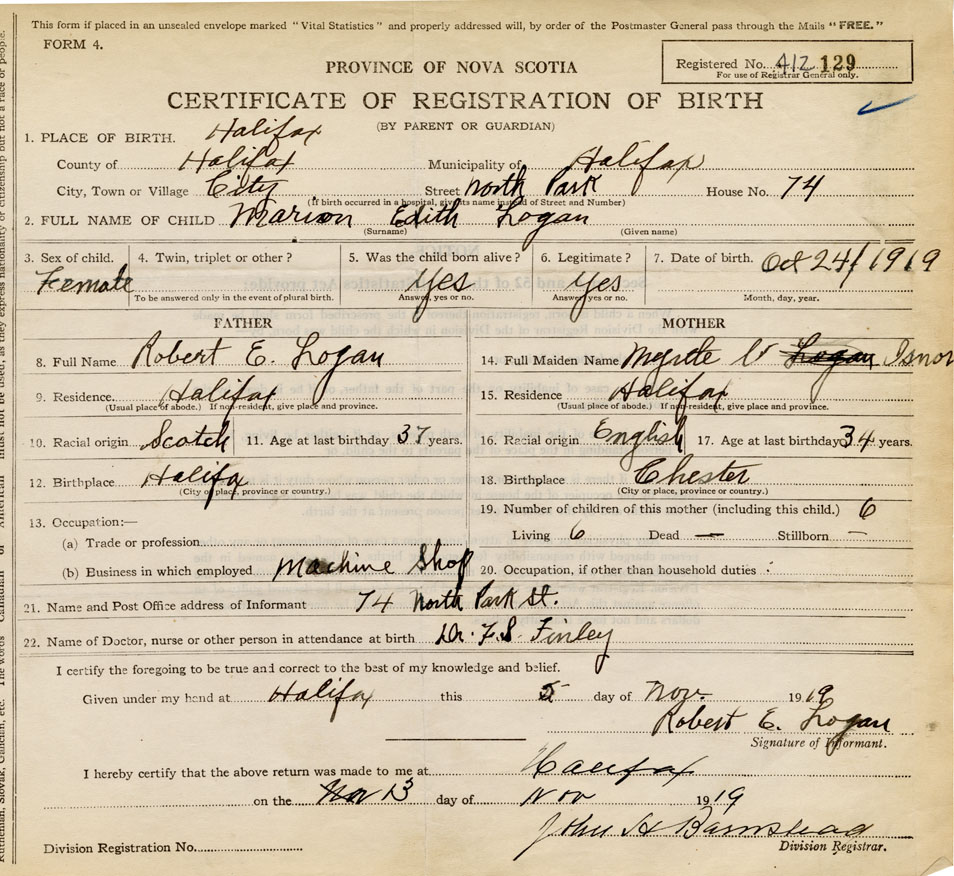 This form if placed in an unsealed envelope marked "Vital Statistics" and properly addressed will, by order of the Postmaster General pass through the Mails "FREE."
FORM 4.
Registered No. 412 129
For use of Registrar General only.
PROVINCE OF NOVA SCOTIA
CERTIFICATE OF REGISTRATION OF BIRTH
(BY PARENT OR GUARDIAN)
1. PLACE OF BIRTH. Halifax
County of Halifax Municipality of Halifax
City, Town or Village City Street North Park House No. 74
(If birth occurred in a hospital, give its name instead of Street and Number)
2. FULL NAME OF CHILD Marion Edith Logan
(Surname) (Given name)
3. Sex of child. 4. Twin, triplet or other? 5. Was the child born alive? 6. Legitimate? 7. Date of birth. Oct 24/1919
Female Yes Yes
To be answered only in the event of plural birth. Answer, yes or no. Answer, yes or no. Month, day, year.
FATHER MOTHER
8. Full Name Robert E. Logan 14. Full Maiden Name Myrtle Logan Isnor
9. Residence. Halifax 15. Residence Halifax
(Usual place of abode.) If non-resident, give place and province. (Usual place of abode.) If non-resident, give place and province.
10. Racial origin Scotch 11. Age at last birthday 37 years. 16. Racial origin English 17. Age at last birthday 34 years.
12. Birthplace Halifax 18. Birthplace Chester
(City or place, province or country.) (City or place, province or country.)
13. Occupation:— 19. Number of children of this mother (including this child.) 6
(a) Trade or profession Living 6 Dead — Stillborn —
(b) Business in which employed Machine Shop 20. Occupation, if other than household duties
21. Name and Post Office address of Informant 74 North Park St.
22. Name of Doctor, nurse or other person in attendance at birth Dr. F.S. Finley
I certify the foregoing to be true and correct to the best of my knowledge and belief.
Given under my hand at Halifax this 5 day of Nov. 1919
Robert E. Logan
Signature of Informant.
I hereby certify that the above return was made to me at Halifax
on the Nov 13 day of Nov 1919
John H Barnstead
Division Registrar.
Division Registration No.